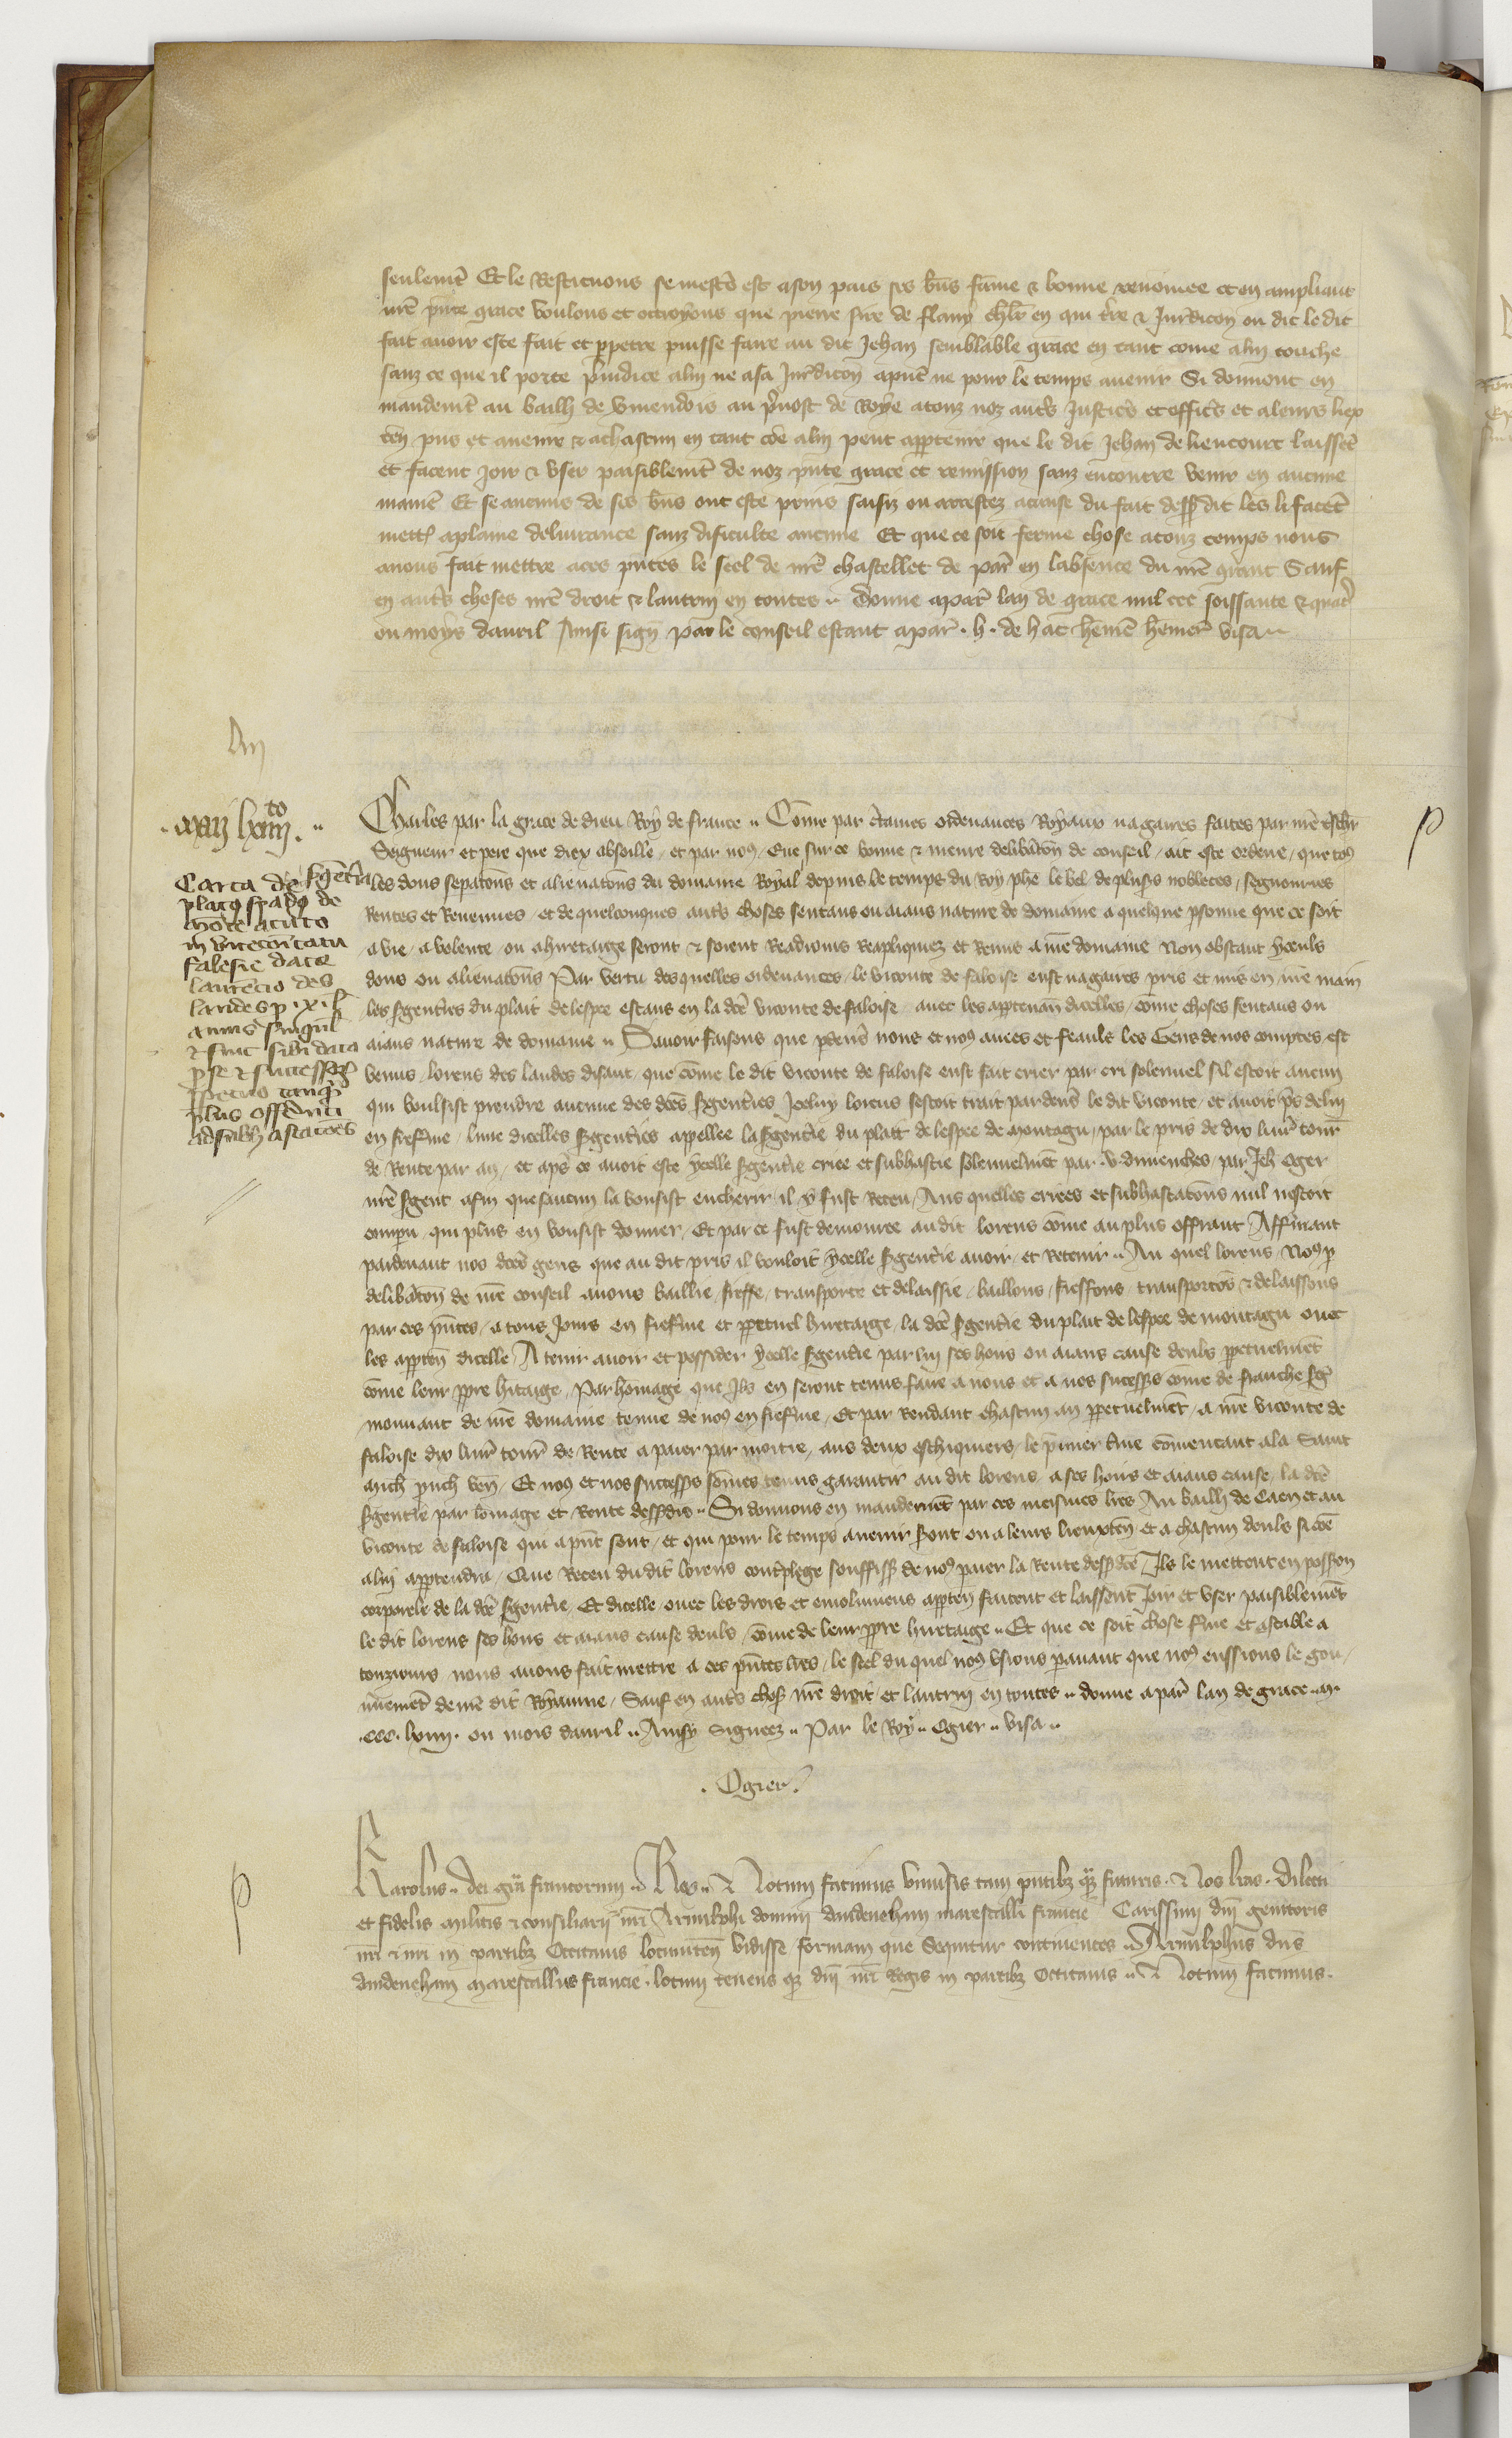 seulemt Et le Restituons se mestr est a son pais ses bns fame & bonne renomee et en ampliant
nre pnte grace voulons et octroyons que pierre sire de flavy chlr en qui tre & Juridicon on dit le dit
fait avoir este fait et ppetre puisse faire au dit Jehan semblable grace en tant come a lui touche
sanz ce que il porte preiudice a lui ne a sa Juridicon a pnt ne pour le temps avenir Si donnont en
mandemt au bailli de vmendois au pvost de Roye a touz noz autrs Justicrs et officrs et a leurs liex
ten pns et avenir & a chascun en tant coe a lui peut appartenir que le dit Jehan de liencourt laissent
et facent joir & user paisiblemt de noz pnte grace et remission sanz encontre venir en aucune
maniere Et se aucuns de ses bns ont este prins saisiz ou arrestez a cause du fait dessus dit les li facent
mettre a plaine delivrance sanz dificulte aucune Et que ce soit ferme chose a touz temps nous
avons fait mettre a ces pntes le seel de nre chastellet de par en labsence du nre grant Sauf
en autrs choses nre droit & lautrui en toutes Donne a par lan de grace mil ccc soissante & quatre
ou moys davril Ainsi sign par le conseil estant a par h de hac hemer visa
xxxij lxiiij to
Carta de sgenteria
placiti spade de
monte acuto
in vicecomitatu
falesie date
laurecio des
landes p x l
annis singul
& fuit sibi data
p se & successor
ppetuo tanq
plus offerenti
ad subhastacoes
Charles par la grace de dieu Roy de france Come par ctaines ordenances Royaux nagaires faites par nre tschr
Seigneur et pere que diex absoille et par nous Eue sur ce bonne & meure delibaton de conseil ait este ordene que tous
les dons separatons et alienatons du domaine Royal depuis le temps du Roy phe le bel de plusrs nobleces segnouries
Rentes et Revenues et de quelconques autrs choses sentans ou aians nature de domaine a quelque psonne que ce soit
a vie a volente ou a hiretaige seront & soient Readiouns Reapliquez et Remis a nre domaine Non obstant yceuls
dons ou alienatons Par vertu des quelles ordenances le viconte de faloise eust nagaires pris et mis en nre main
les sgentries du plait de lespee estans en la dce viconte de faloise avec les appartenan dicelles come choses sentans ou
aians nature de domaine Savoir faisons que pdevs nous et nos amees et feauls les Gens de nos comptes est
venus lorens des landes disant que come le dit viconte de faloise eust fait crier par cri solennel sil estoit aucun
qui voulsist prendre aucune des dces sgentries Jceluy lorens sestoit trait par devs le dit viconte et avoit prs de lui
en fiefferme lune dicelles sgentries appellee la sgentrie du plait de lespee de montagu par le pris de dix livrs tourn
de Rente par an et aps ce avoit este ycelle sgentrie criee et subhastee solennelmet par v dimenches par Jeh Oger
nre sgent afin que saucun la vousist encherir il y fust Receu Aus quelles criees et subhastatons nul nestoit
compu qui plus en vousist donner Et par ce fust demouree au dit lorens come au plus offrant Affermant
pardevant nos dces gens que au dit pris il vouloit ycelle sgentrie avoir et Retenir Au quel lorens Nous p
delibaton de nre conseil avons baillie fieffe transporte et delaissie baillons fieffons transportos & delaissons
par ces pntes a tous Jours en fiefferme et ppetuel hiretaige la dce sgentrie du plait de lespee de montagu avec
les apparten dicelle A tenir avoir et possider ycelle sgentrie par lui ses hoirs ou aians cause deuls ppetuelmet
come leur ppre hitaige Par homage que Ils en seront tenus faire a nous et a nos successrs come de franche sgen
mouvant de nre domaine tenue de nous en fiefferme Et par Rendant chascun an ppetuelmet a nre viconte de
faloise dix livrs tourn de Rente a paier par moitie aus deux eschiquiers le pmier tme comencant a la Saint
Mich pch ven Et nous et nos successrs somes tenus garantir au dit lorens a ses hoirs et aians cause la dce
sgentrie par lomage et Rente dessdis Si donnons en mandemet par ces meismes lres Au bailli de Caen et au
viconte de faloise qui a pnt sont et qui pour le temps avenir seront ou a leurs lieuxten et a chascun deuls si coe
a lui appartendra Que Receu du dit lorens contrplege souffiss de nous paier la Rente dess dce Ils le mettent en possion
corporele de la dce sgentrie Et dicelle avec les drois et emolumens apparten facent et laissent Joir et user paisiblemet
le dit lorens ses hoirs et aians cause deuls come de leur ppre hiretaige Et que ce soit chose ferme et estable a
touziours nous avons fait mettre a ces pntes lres le seel du quel nous usions pavant que nous eussions le gou
vnemet de nre dit Royaume Sauf en autrs choses nre droit et lautrui en toutes donne a par lan de grace m
ccc lxiiij ou mois davril Ainsy Signees Par le Roy Ogier visa
Ogier
Karolus dei gra francorum Rex Notum facimus universis tam pntibz qz futuris Nos lras dilecti
et fidelis militis & consiliarii nri Arnulphi domini daudenehan marescalli francie Carissimi dni genitoris
nri & nri in partibz Occitanis locumten vidisse formam que Sequitur continentes Arnulphus dns
daudenehan marescallus francie locum tenens qz dni nri Regis in partibz Occitanis Notum facimus